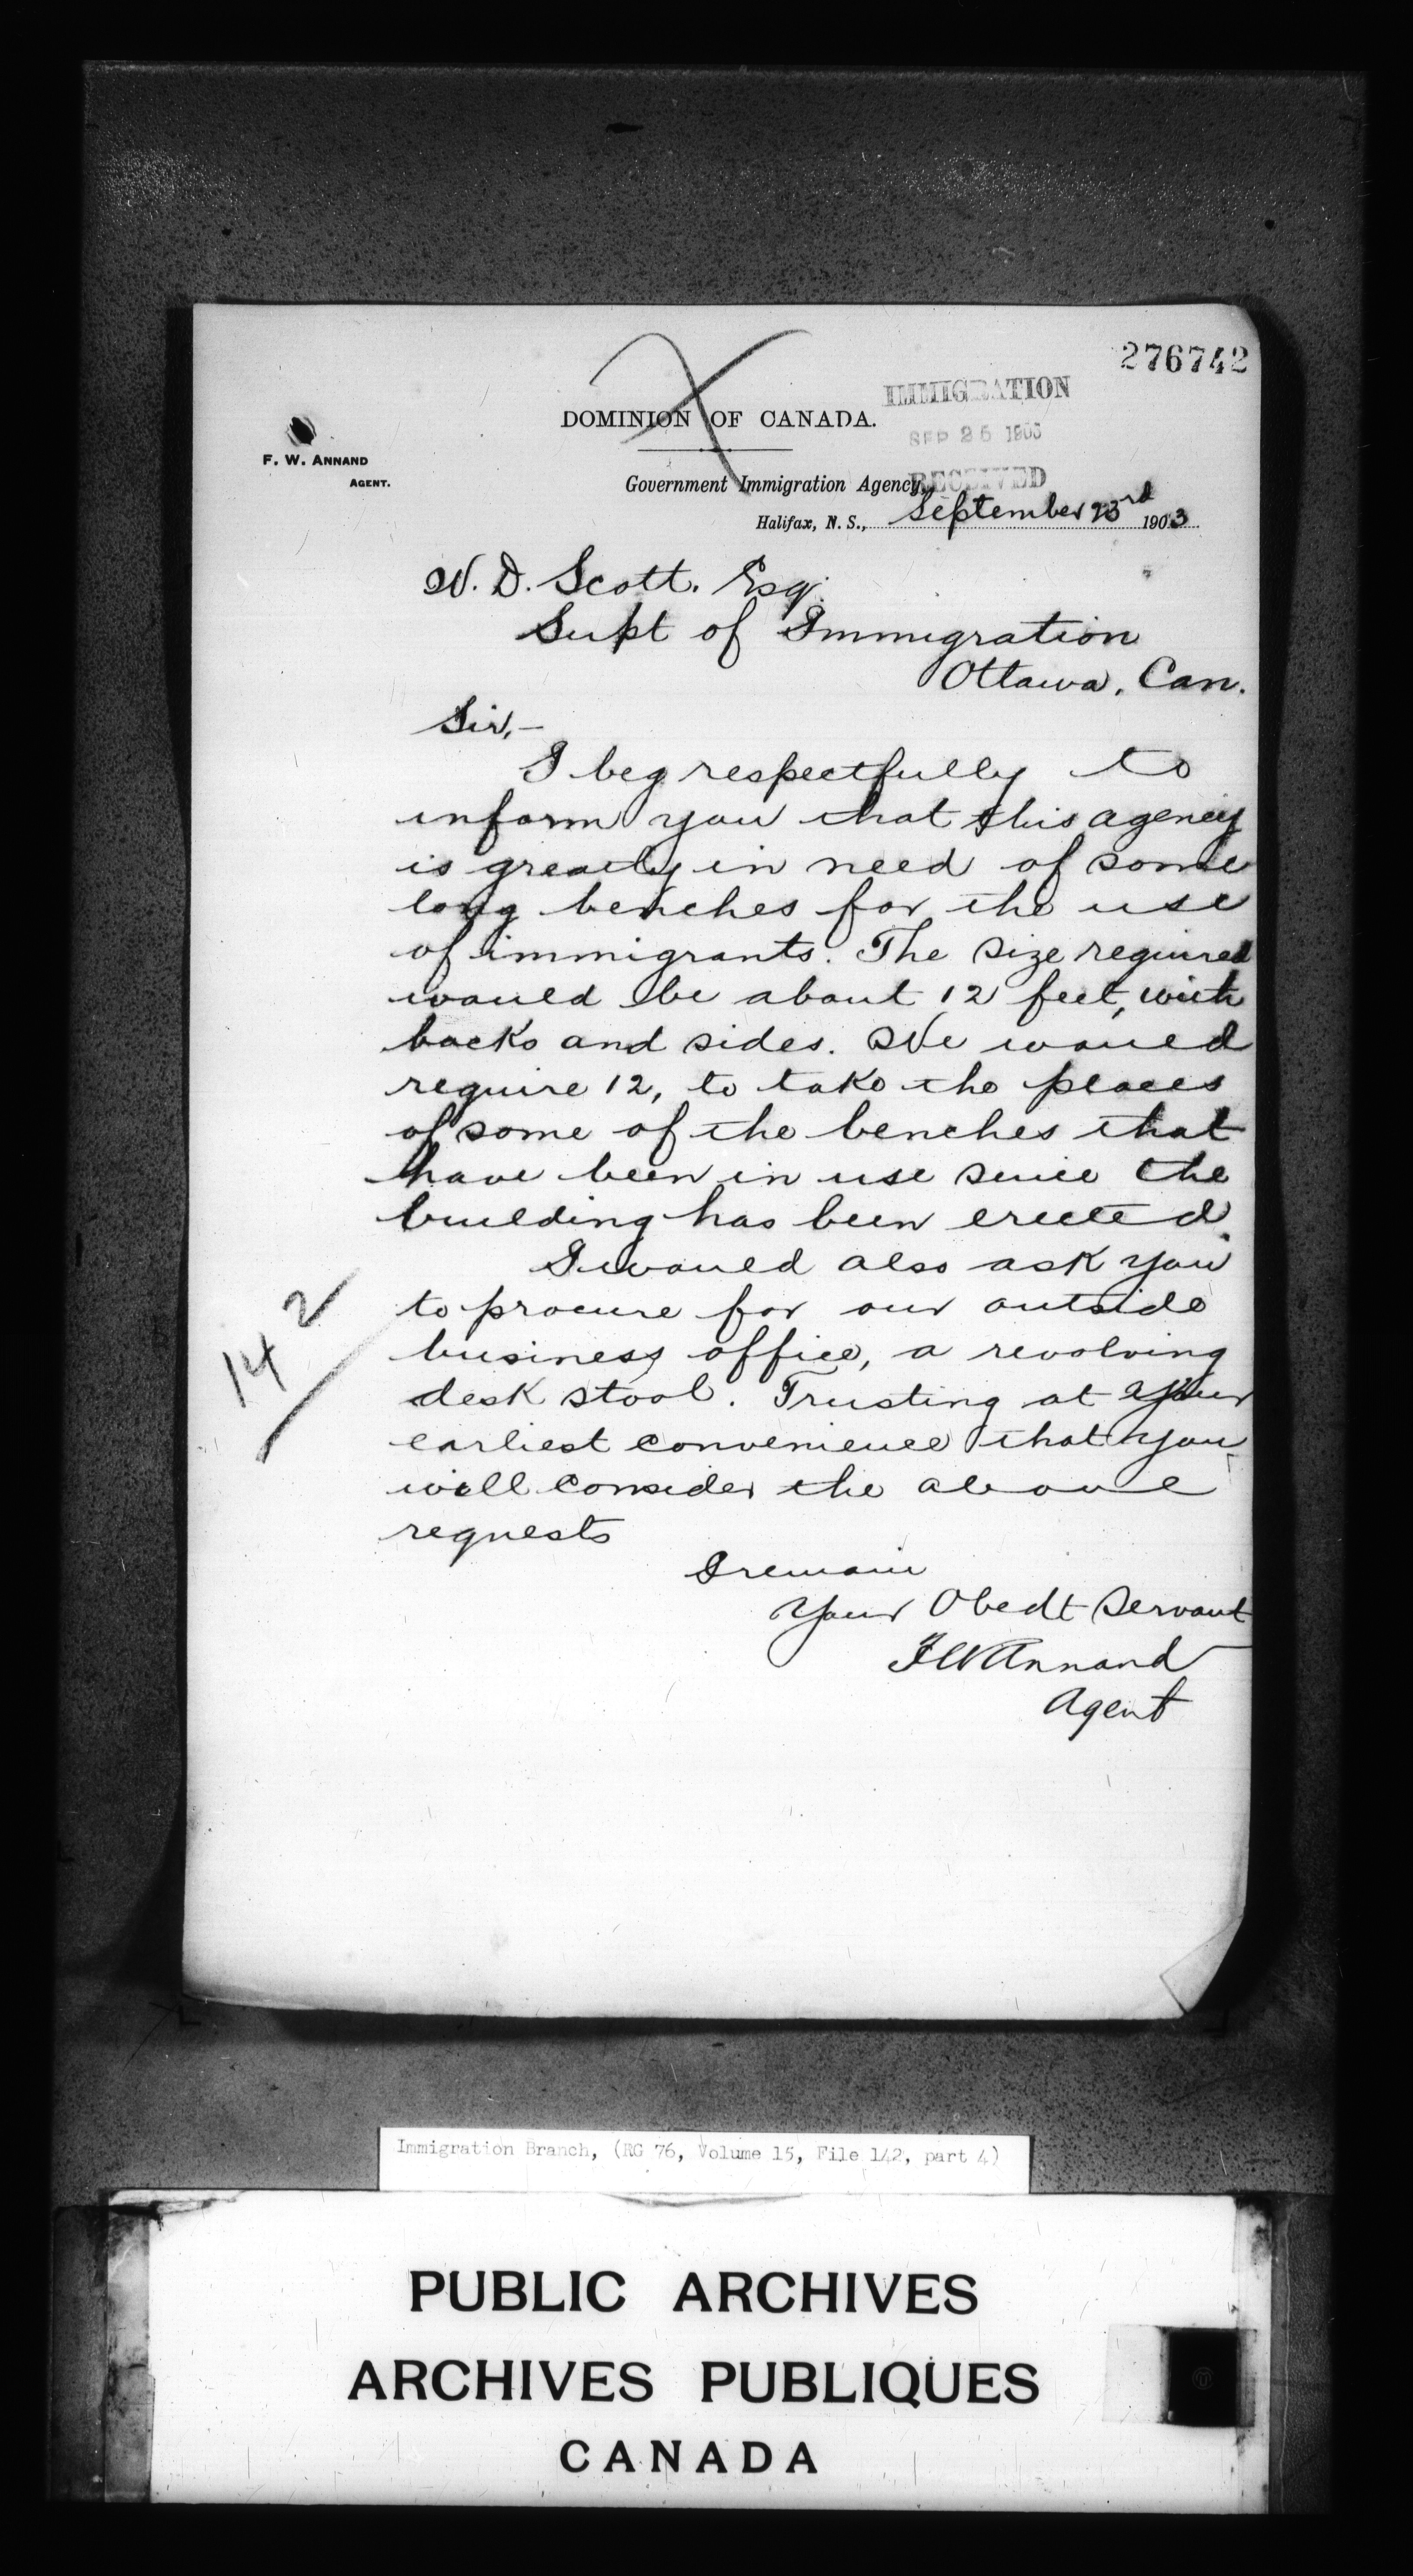 276742
IMMIGRATION
SEP 25 1903
RECEIVED
DOMINION OF CANADA.
F. W. ANNAND
AGENT.
Government Immigration Agency,
Halifax, N. S., September 23rd 1903
W. D. Scott. Esq.
Supt of Immigration
Ottawa, Can.
Sir,—
I beg respectfully to
inform you that this agency
is greatly in need of some
long benches for the use
of immigrants. The size required
would be about 12 feet, with
backs and sides. We would
require 12, to take the places
of some of the benches that
have been in use since the
building has been erected.
I would also ask you
to procure for our outside
business office, a revolving
desk stool. Trusting at your
earliest convenience that you
will consider the above
requests
I remain
Your Obedt Servant
F W Annand
Agent
142
Immigration Branch, (RG 76, Volume 15, File 142, part 4)
PUBLIC ARCHIVES
ARCHIVES PUBLIQUES
CANADA